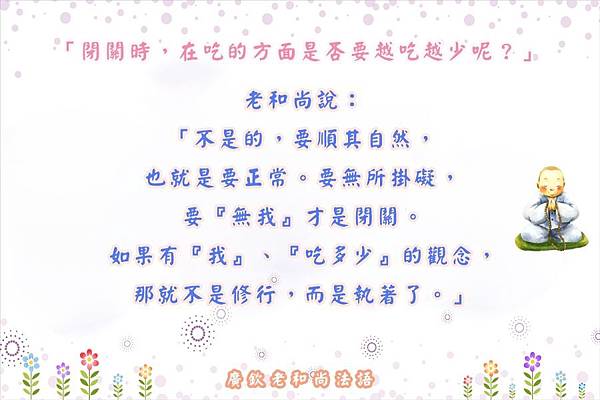 「閉關時，在吃的方面是否要越吃越少呢？」
老和尚說：
「不是的，要順其自然，
也就是要正常。要無所掛礙，
要『無我』才是閉關。
如果有『我』、『吃多少』的觀念，
那就不是修行，而是執著了。」
廣欽老和尚法語